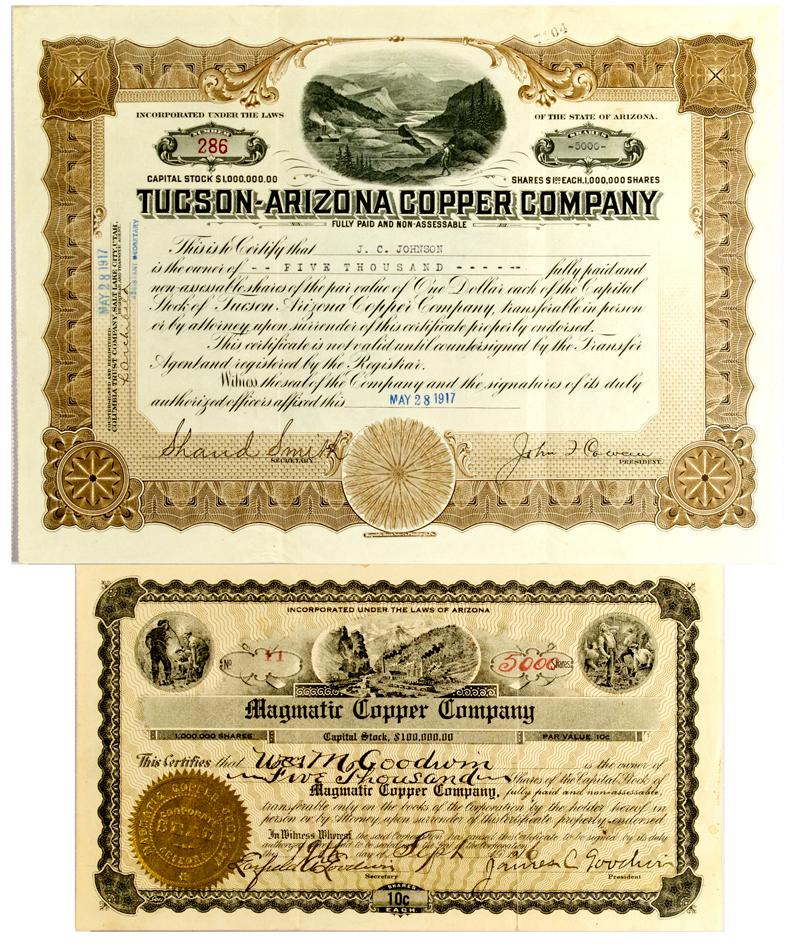 7104
INCORPORATED UNDER THE LAWS OF THE STATE OF ARIZONA.
NUMBER
286
SHARES
-5000-
CAPITAL STOCK $1,000,000.00
SHARES $1.00 EACH. 1,000,000 SHARES
TUCSON-ARIZONA COPPER COMPANY
FULLY PAID AND NON-ASSESSABLE
This is to Certify that J. C. JOHNSON
is the owner of -- FIVE THOUSAND ------ fully paid and
non-assessable shares of the par value of One Dollar each of the Capital
Stock of Tucson-Arizona Copper Company, transferable in person
or by attorney upon surrender of this certificate properly endorsed.
This certificate is not valid until countersigned by the Transfer
Agent and registered by the Registrar.
Witness the seal of the Company and the signatures of its duly
authorized officers affixed this MAY 28 1917
Shand Smith
SECRETARY.
John F Cowan
PRESIDENT.
COUNTERSIGNED AND REGISTERED
COLUMBIA TRUST COMPANY, SALT LAKE CITY, UTAH.
MAY 28 1917
ASSISTANT SECRETARY
INCORPORATED UNDER THE LAWS OF ARIZONA
No 11
5000 Shares
Magmatic Copper Company
1,000,000 SHARES
Capital Stock, $100,000.00
PAR VALUE 10c
This Certifies that Wm M Goodwin is the owner of
Five Thousand Shares of the Capital Stock of
Magmatic Copper Company, fully paid and non-assessable,
transferable only on the books of the Corporation by the holder hereof in
person or by Attorney, upon surrender of this Certificate properly endorsed
In Witness Whereof, the said Corporation has caused this Certificate to be signed by its duly
authorized officers and to be sealed with the Seal of the Corporation
day of Sept
Secretary
James C Goodwin
President
MAGMATIC COPPER COMPANY
CORPORATE
SEAL
ARIZONA
SHARES
10c
EACH